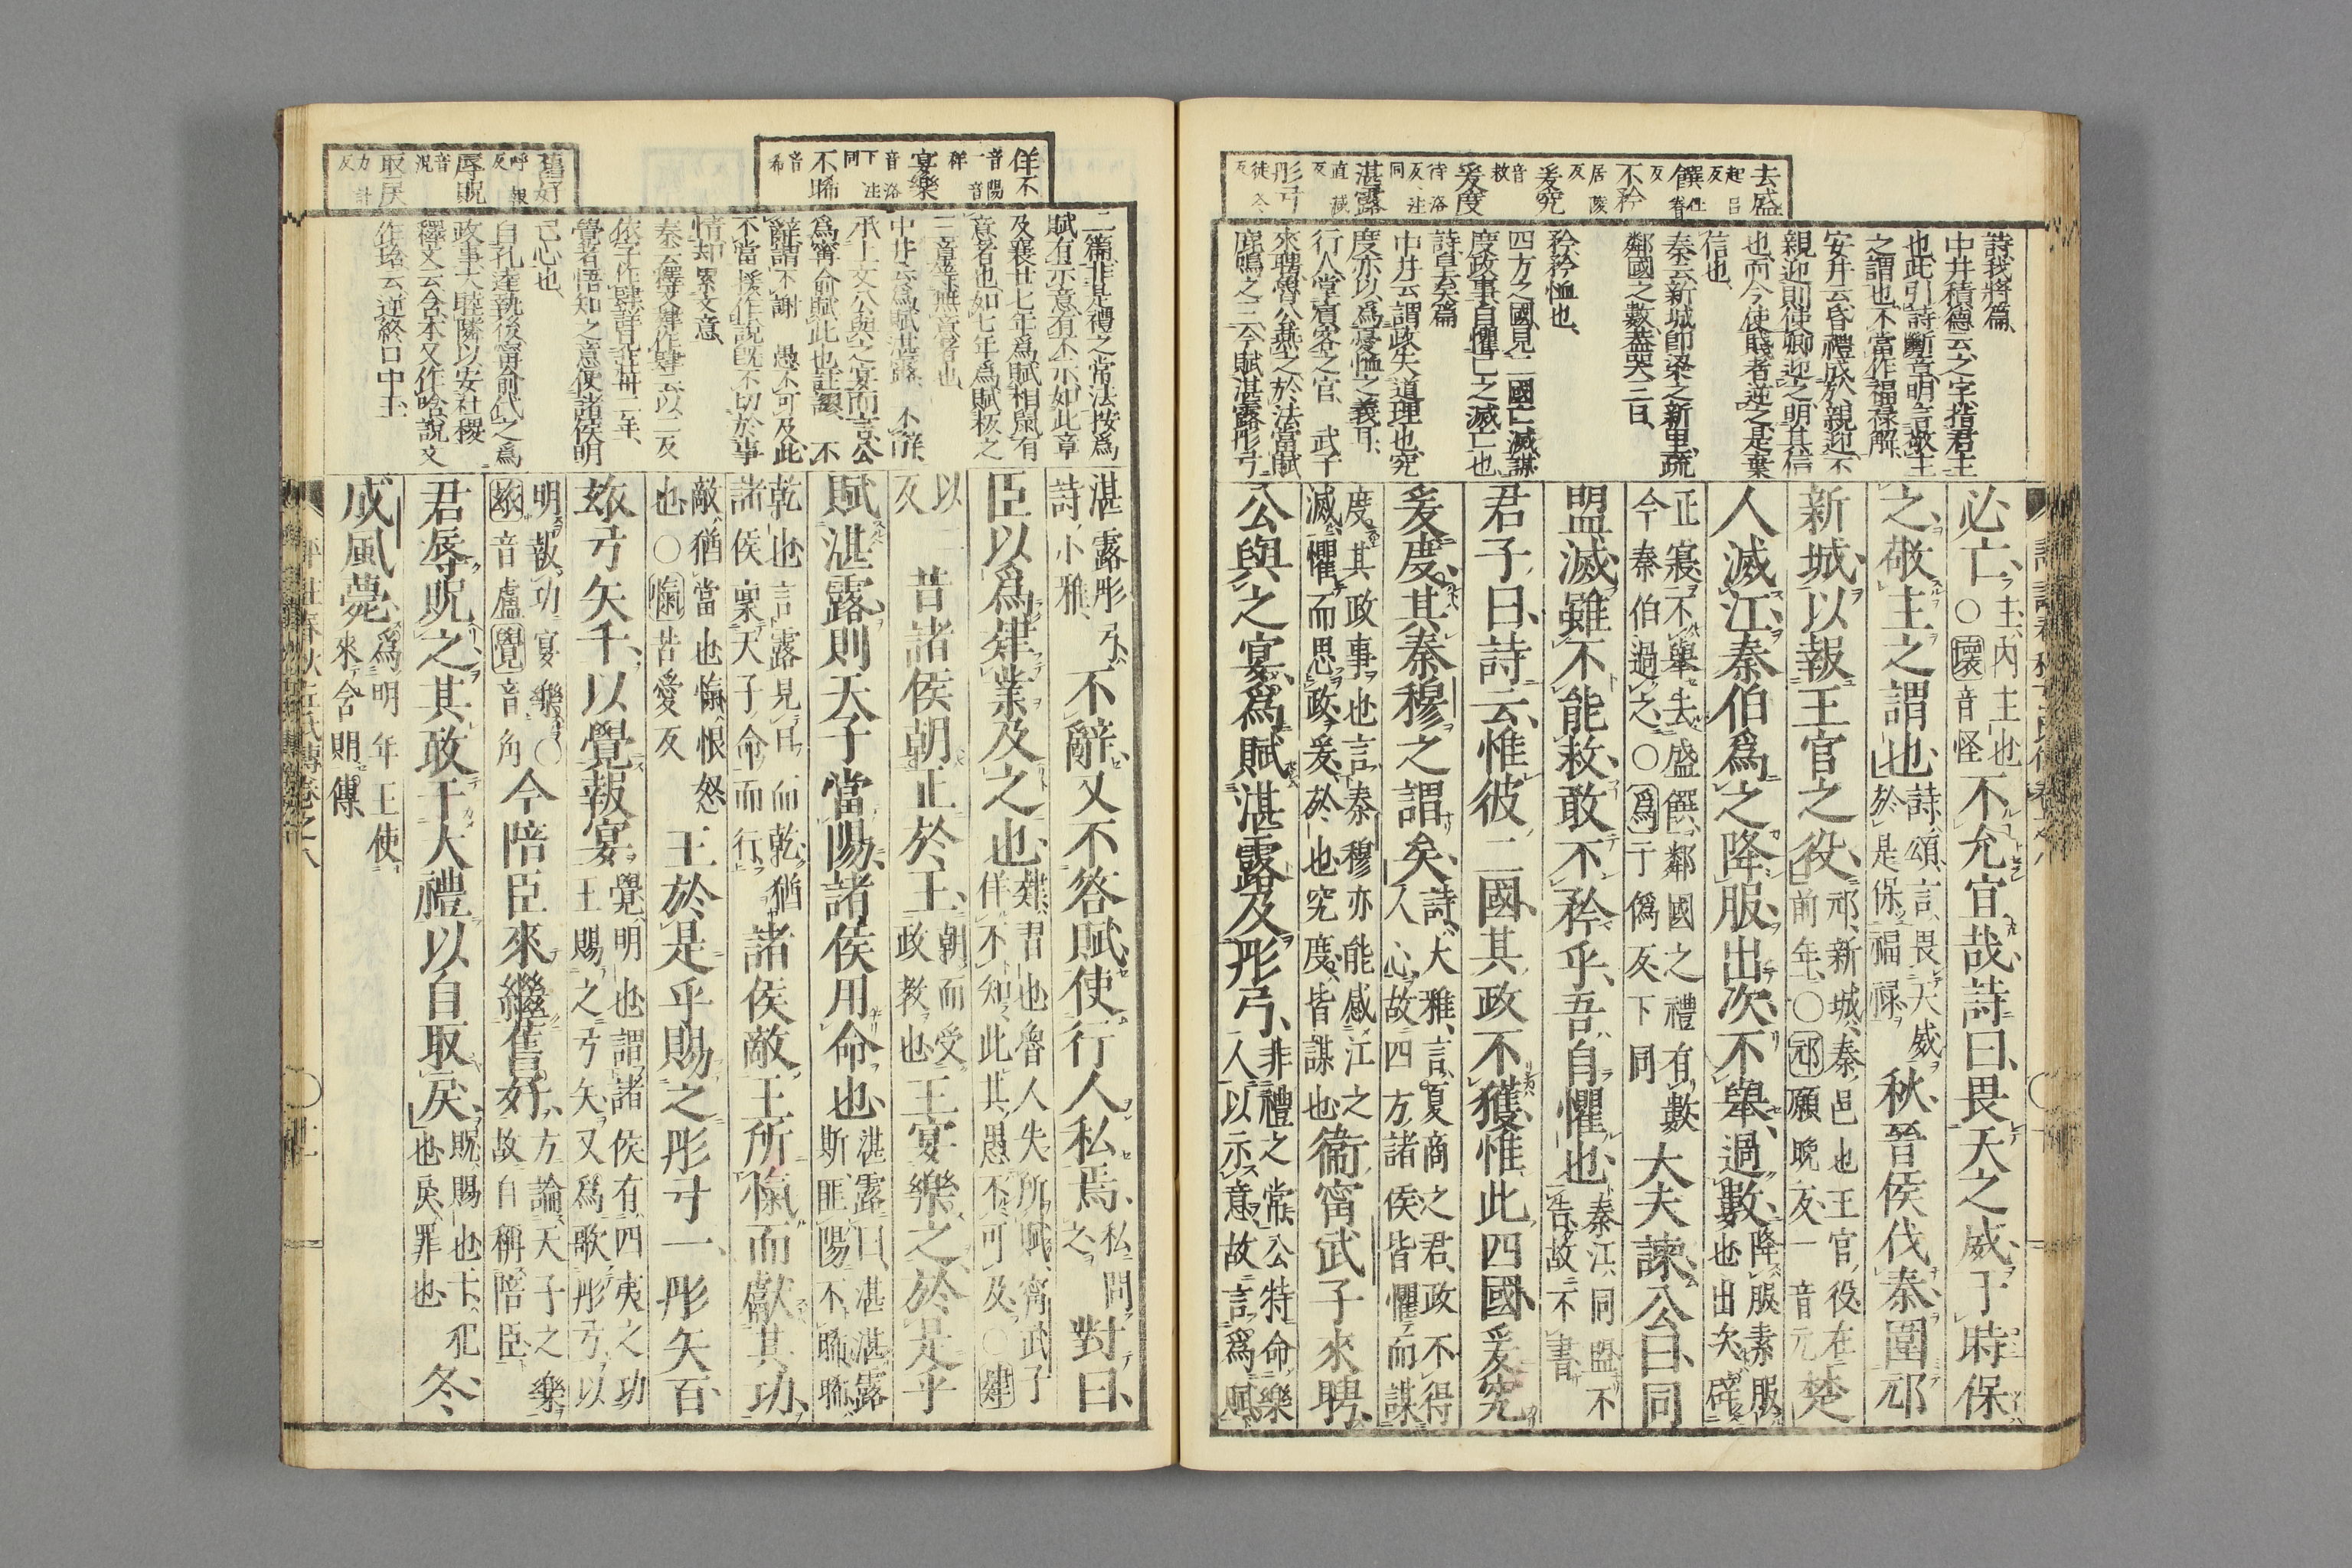 去盛
起呂反
饌
仕眷反
不矜
居陵反
爰究
音救
爰度
待洛反注同
湛露
直減反
彤弓
徒冬反
詩我將篇、
中井積德云之字指君主
也此引詩斷章明言敬主
之謂也、不當作福祿解、
安井云昏禮成於親迎不
親迎則使卿迎之、明其信
也而今使賤者逆之、是棄
信也、
秦云新城即梁之新里疏
鄰國之數蓋哭三日、
矜矜恤也、
四方之國見二國亡滅謀
度政事自懼亡之滅亡也
詩皇矣篇
中井云謂政失道理也究
度亦以爲憂恤之義耳、
行人掌賓客之官、武子
來聘魯公燕之於法當賦
鹿鳴之三今賦湛露彤弓
必亡、主內主也○壞音怪不允宜哉、詩曰、畏天之威、于時保
之、敬主之謂也、詩頌言畏天威於是保福祿秋、晉侯伐秦、圍邧
新城、以報王官之役、邧新城秦邑也王官役在前年、○邧願晩反一音元楚
人滅江、秦伯爲之降服出次、不舉、過數、降服素服也出次辟
正寢不舉去盛饌鄰國之禮有數今秦伯過之、○爲于僞反下同大夫諫、公曰、同
盟滅、雖不能救、敢不矜乎、吾自懼也、秦江同盟不告故不書
君子曰、詩云、惟彼二國、其政不獲、惟此四國、爰究
爰度、其秦穆之謂矣、詩大雅、言夏商之君政不得人心故四方諸侯皆懼而謀
度其政事也言秦穆亦能感江之滅懼而思政爰於也究度皆謀也衞甯武子來聘、
公與之宴、爲賦湛露及彤弓、非禮之常公特命樂人以示意故言爲賦
佯不
音陽一音祥
宴樂
音洛下注同
不晞
音希
舊好
呼報反
辱貺
音況
取戾
力計反
二篇非是禮之常法按爲
賦有示意有不示如此章
及襄廿七年爲賦相鼠有
意者也、如七年爲賦枤之
三章等無意者也、
中井云爲賦湛露、不辭
承上文公與之宴而言公
爲甯俞賦此也註誤、不
辭謂不謝 愚不可及此
不當援作說既不切於事
情却累文意、
秦云釋文肄作肆云以二反
依字作肄昔見莊卅二年、
覺者悟知之意使諸侯明
己心也、
自孔達執後甯俞代之爲
政事大睦隣以安社稷
釋文云含本又作唅說文
作琀云送終口中玉、
湛露彤弓詩小雅、不辭、又不答賦、使行人私焉、私問之對曰、
臣以爲肄業及之也、肄習也魯人失所賦、甯武子佯不知此其愚不可及、○肄
以二反昔諸侯朝正於王、朝而受政教也王宴樂之、於是乎
賦湛露、則天子當陽、諸侯用命也、湛露曰、湛湛露斯匪陽不晞晞
乾也言露見日而乾猶諸侯稟天子命而行諸侯敵王所愾而獻其功、
敵猶當也愾恨怒也、○愾苦愛反王於是乎賜之彤弓一、彤矢百、
玈弓矢千、以覺報宴、覺明也謂諸侯有四夷之功王賜之弓矢又爲歌彤弓以
明報功宴樂、○玈音盧覺音角今陪臣來繼舊好、方論天子之樂故自稱陪臣、
君辱貺之、其敢干大禮以自取戾、貺賜也干犯也戾罪也冬、
成風薨、爲明年王使來含賵傳
評註春秋左氏傳卷之八